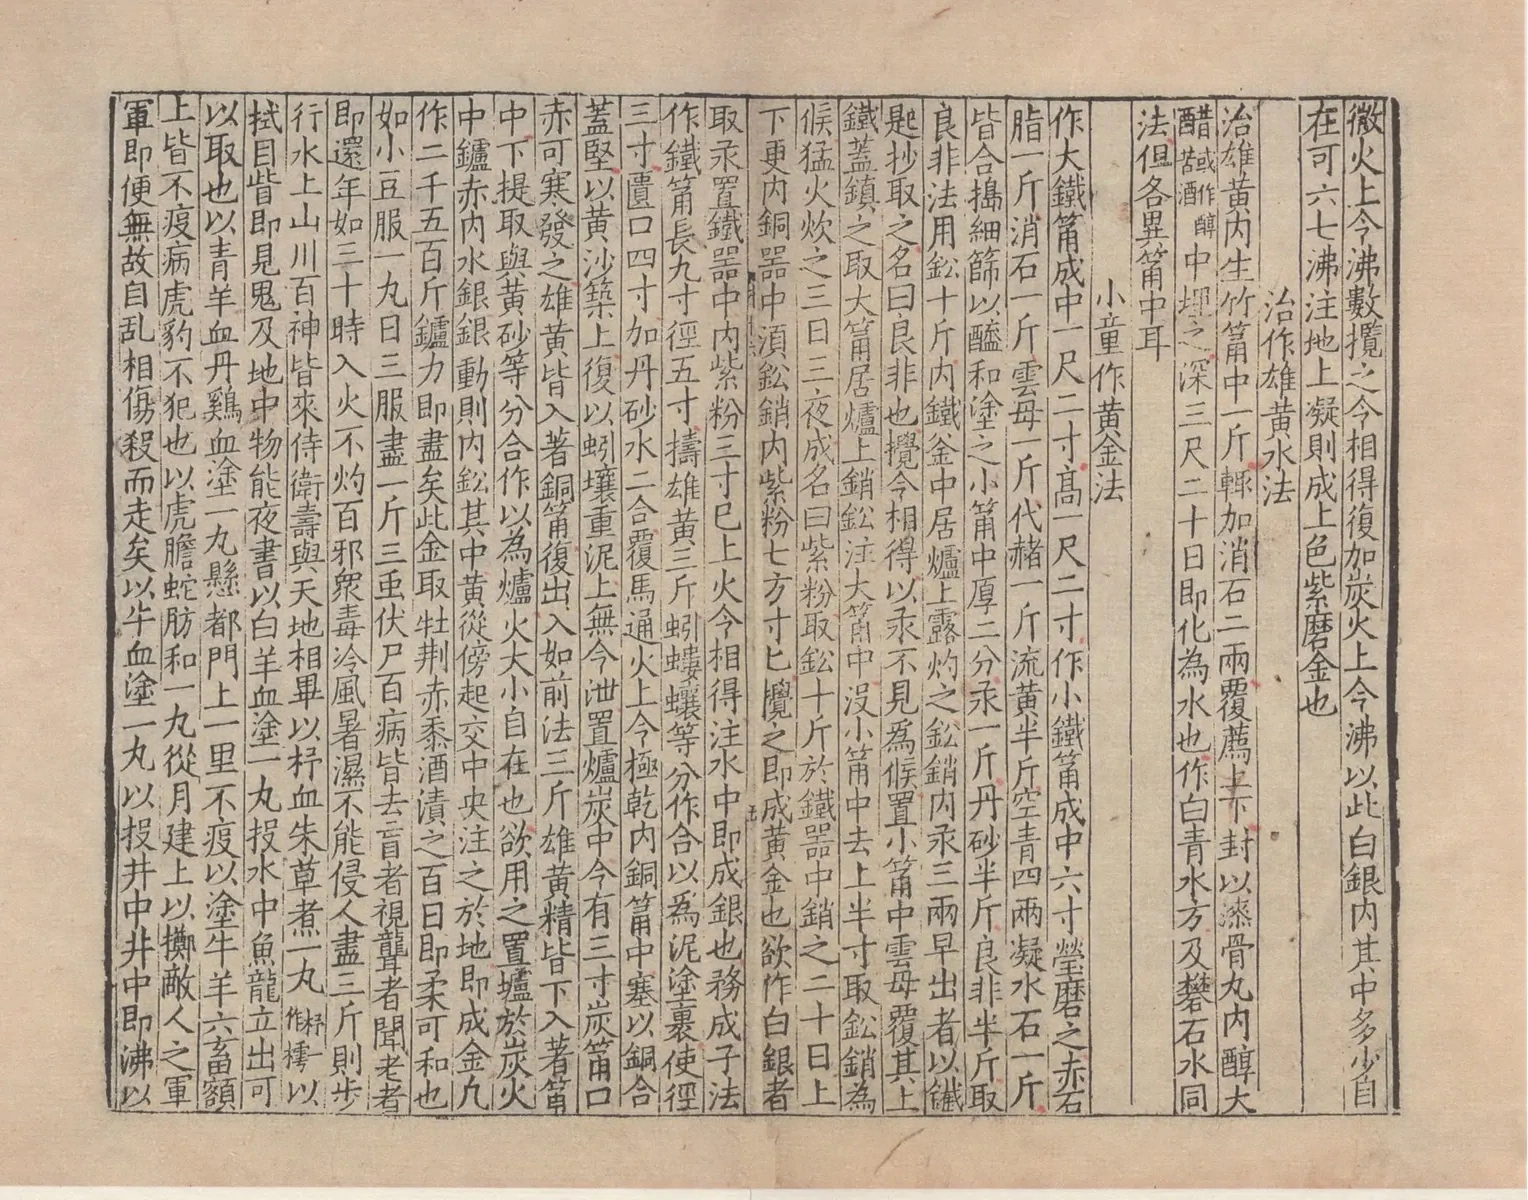 微火上令沸數攪之令相得復加炭火上令沸以此白銀內其中多少自
在可六七沸注地上凝則成上色紫磨金也
治作雄黃水法
治雄黃內生竹筩中一斤輙加消石二兩覆薦上下封以漆骨丸內醇大
醋或作醇苦酒中埋之深三尺二十日即化為水也作白青水方及礬石水同
法但各異筩中耳
小童作黃金法
作大鐵筩成中一尺二寸高一尺二寸作小鐵筩成中六寸瑩磨之赤石
脂一斤消石一斤雲母一斤代赭一斤流黃半斤空青四兩凝水石一斤
皆合搗細篩以醯和塗之小筩中厚二分汞一斤丹砂半斤良非半斤取
良非法用鈆十斤內鐵釜中居爐上露灼之鈆銷內汞三兩早出者以鐵
匙抄取之名曰良非也攪令相得以汞不見為候置小筩中雲母覆其上
鐵蓋鎮之取大筩居爐上銷鈆注大筩中沒小筩中去上半寸取鈆銷為
候猛火炊之三日三夜成名曰紫粉取鈆十斤於鐵器中銷之二十日上
下更內銅器中湏鈆銷內紫粉七方寸匕攪之即成黃金也欲作白銀者
取汞置鐵器中內紫粉三寸已上火令相得注水中即成銀也務成子法
作鐵筩長九寸徑五寸擣雄黃三斤蚓螻壤等分作合以為泥塗裹使徑
三寸匱口四寸加丹砂水二合覆馬通火上令極乾內銅筩中塞以銅合
蓋堅以黃沙築上復以蚓壤重泥上無令泄置爐炭中令有三寸炭筩口
赤可寒發之雄黃皆入著銅筩復出入如前法三斤雄黃精皆下入著筩
中下提取與黃砂等分合作以為爐火大小自在也欲用之置爐於炭火
中鑪赤內水銀銀動則內鈆其中黃從傍起交中央注之於地即成金凡
作二千五百斤鑪力即盡矣此金取牡荊赤黍酒漬之百日即柔可和也
如小豆服一丸日三服盡一斤三䖝伏尸百病皆去盲者視聾者聞老者
即還年如三十時入火不灼百邪眾毒冷風暑濕不能侵人盡三斤則步
行水上山川百神皆來侍衛壽與天地相畢以杼血朱草煮一丸杼一作樗以
拭目眥即見鬼及地中物能夜書以白羊血塗一丸投水中魚龍立出可
以取也以青羊血丹鷄血塗一丸懸都門上一里不疫以塗牛羊六畜額
上皆不疫病虎豹不犯也以虎膽蛇肪和一丸從月建上以擲敵人之軍
軍即便無故自乱相傷殺而走矣以牛血塗一丸以投井中井中即沸以